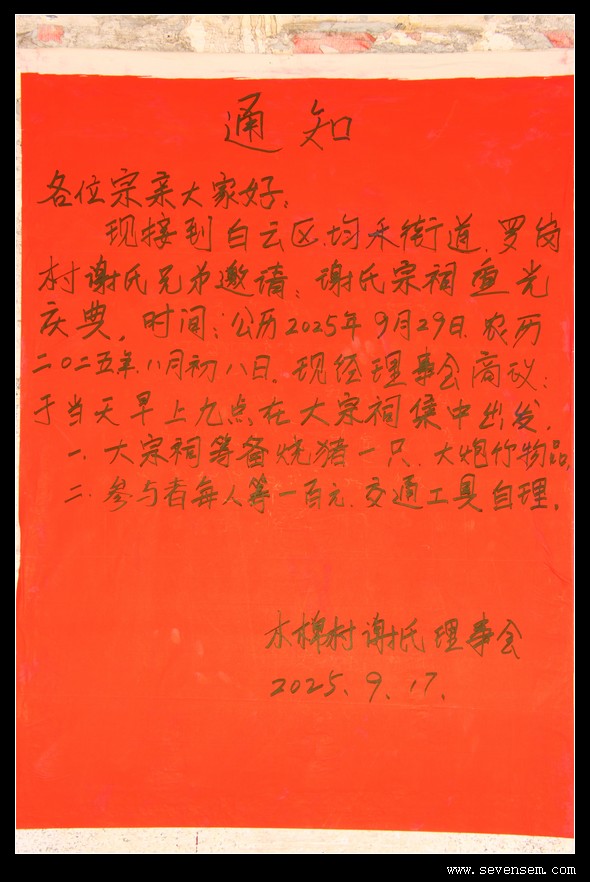 通知
各位宗亲大家好:
现接到白云区均禾街道.罗岗
村谢氏兄弟邀请:谢氏宗祠重光
庆典,时间:公历2025年9月29日.农历
二〇二五年.八月初八日.现经理事会商议:
于当天早上九点在大宗祠集中出发.
一.大宗祠筹备烧猪一只.大炮竹物品,
二.参与者每人筹一百元.交通工具自理。
木棉村谢氏理事会
2025.9.17.
www.sevensem.com